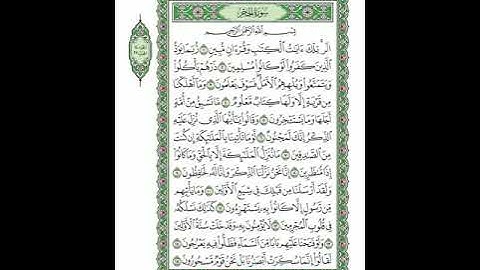 سُورَةُ الحِجْرِ
بِسْمِ اللَّهِ الرَّحْمَٰنِ الرَّحِيمِ
الٓرۚ تِلْكَ ءَايَٰتُ ٱلْكِتَٰبِ وَقُرْءَانٍ مُّبِينٍ ١ رُّبَمَا يَوَدُّ
ٱلَّذِينَ كَفَرُوا۟ لَوْ كَانُوا۟ مُسْلِمِينَ ٢ ذَرْهُمْ يَأْكُلُوا۟
وَيَتَمَتَّعُوا۟ وَيُلْهِهِمُ ٱلْأَمَلُ ۖ فَسَوْفَ يَعْلَمُونَ ٣ وَمَآ أَهْلَكْنَا
مِن قَرْيَةٍ إِلَّا وَلَهَا كِتَابٌ مَّعْلُومٌ ٤ مَّا تَسْبِقُ مِنْ أُمَّةٍ
أَجَلَهَا وَمَا يَسْتَـْٔخِرُونَ ٥ وَقَالُوا۟ يَٰٓأَيُّهَا ٱلَّذِى نُزِّلَ عَلَيْهِ
ٱلذِّكْرُ إِنَّكَ لَمَجْنُونٌ ٦ لَّوْ مَا تَأْتِينَا بِٱلْمَلَٰٓئِكَةِ إِن كُنتَ
مِنَ ٱلصَّٰدِقِينَ ٧ مَا نُنَزِّلُ ٱلْمَلَٰٓئِكَةَ إِلَّا بِٱلْحَقِّ وَمَا كَانُوٓا۟
إِذًا مُّنظَرِينَ ٨ إِنَّا نَحْنُ نَزَّلْنَا ٱلذِّكْرَ وَإِنَّا لَهُۥ لَحَٰفِظُونَ ٩
وَلَقَدْ أَرْسَلْنَا مِن قَبْلِكَ فِى شِيَعِ ٱلْأَوَّلِينَ ١٠ وَمَا يَأْتِيهِم
مِّن رَّسُولٍ إِلَّا كَانُوا۟ بِهِۦ يَسْتَهْزِءُونَ ١١ كَذَٰلِكَ نَسْلُكُهُۥ
فِى قُلُوبِ ٱلْمُجْرِمِينَ ١٢ لَا يُؤْمِنُونَ بِهِۦ ۖ وَقَدْ خَلَتْ سُنَّةُ ٱلْأَوَّلِينَ
١٣ وَلَوْ فَتَحْنَا عَلَيْهِم بَابًا مِّنَ ٱلسَّمَآءِ فَظَلُّوا۟ فِيهِ يَعْرُجُونَ ١٤
لَقَالُوٓا۟ إِنَّمَا سُكِّرَتْ أَبْصَٰرُنَا بَلْ نَحْنُ قَوْمٌ مَّسْحُورُونَ ١٥